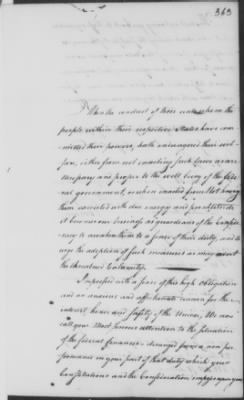 363
When the conduct of those in whom the
people within their respective States have com-
mitted their powers, hath endangered their wel-
fare, either from not enacting such Laws as are ne-
cessary and proper to the well being of the fœderal
government, or when enacted from Not having
them executed with due energy and punctuality
it becomes our as guardians of the Confede-
racy to awaken them to a sense of their duty, and to
urge the adoption of such measures as may avert
the threatened Calamity.
Impressed with a sense of this high obligation
and an anxious and affectionate concern for the
interest, honor and safety of the Union, We now
call your Most serious attention to the situation
of the fœderal finances, deranged from a non per-
formance in your part of that duty which your
Constitutions and the Confederation impose upon you